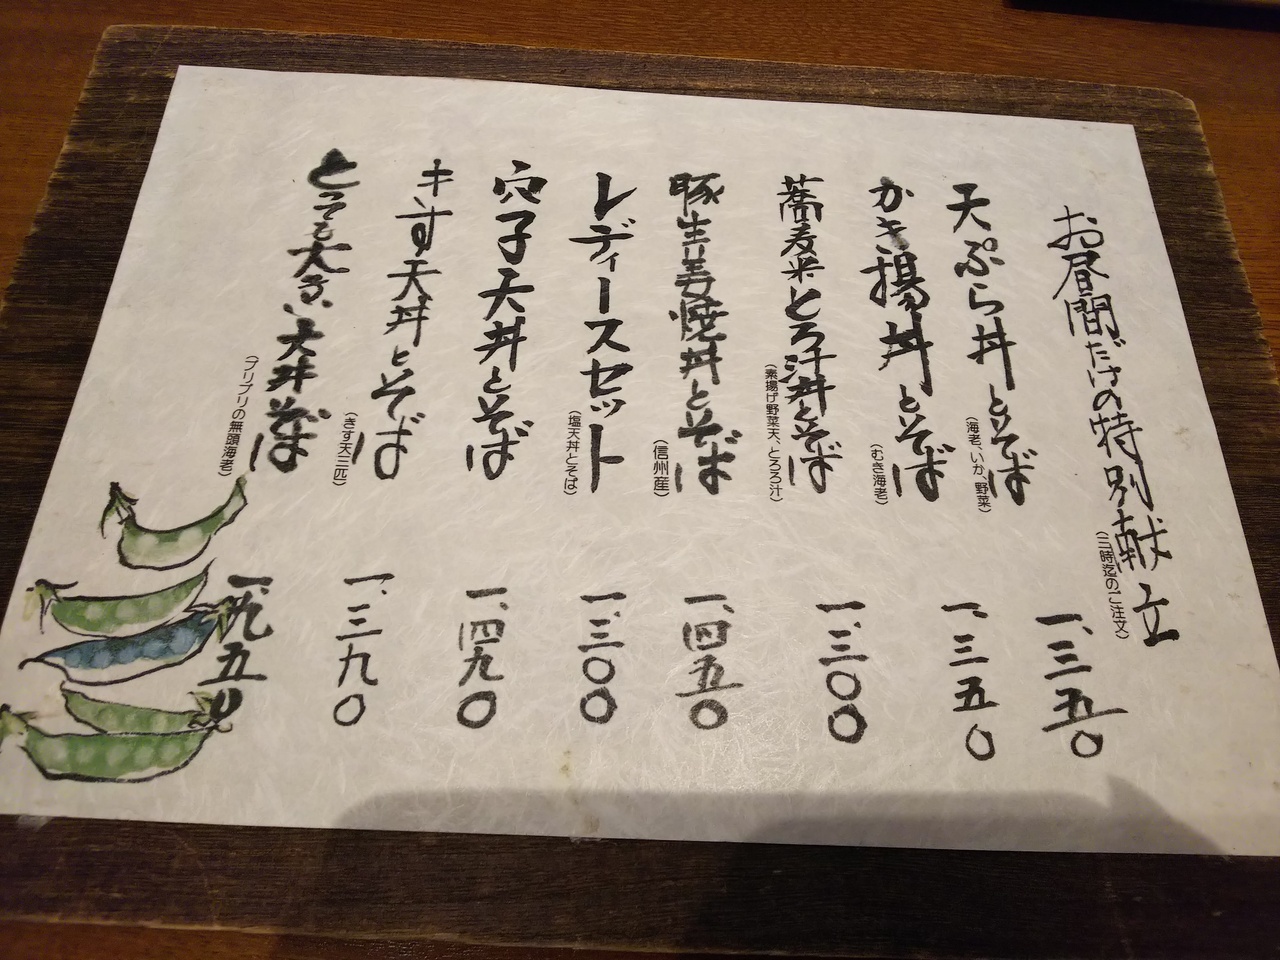 お昼間だけの特別献立
(三時迄のご注文)
天ぷら丼とそば
(海老、いか、野菜)
一、三五〇
かき揚丼とそば
(むき海老)
一、三五〇
蕎麦米とろ汁丼とそば
(素揚げ野菜天、とろろ汁)
一、三〇〇
豚生姜焼丼とそば
(信州産)
一、四五〇
レディースセット
(塩天丼とそば)
一、三〇〇
穴子天丼とそば
一、四九〇
キす天丼とそば
(きす天三匹)
一、三九〇
とても大きい天丼そば
(プリプリの無頭海老)
一、九五〇